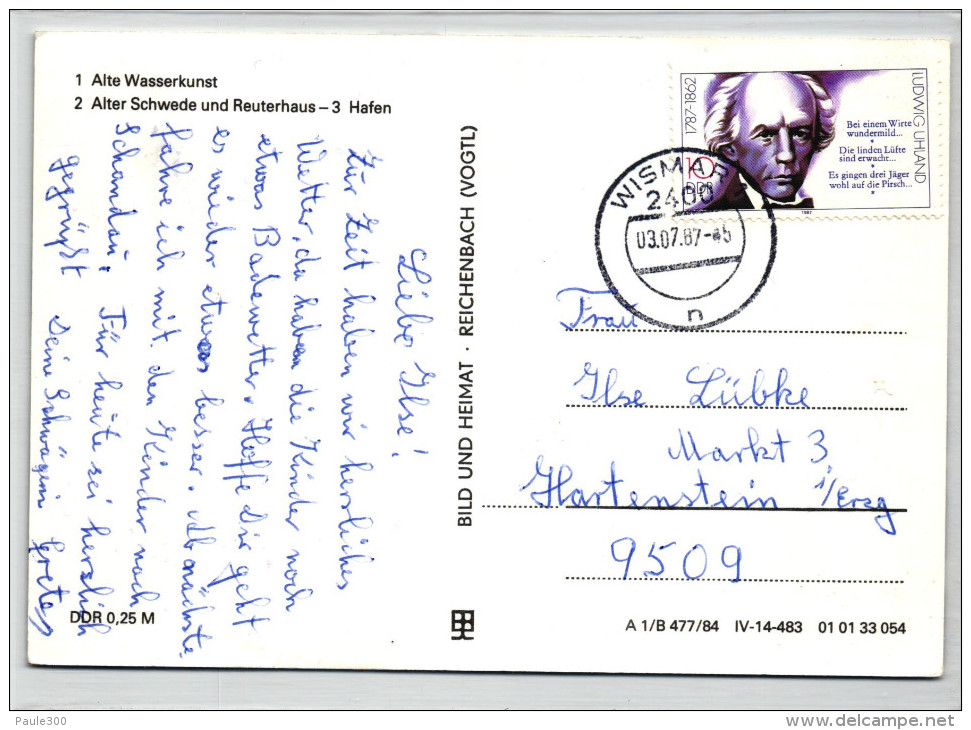 1 Alte Wasserkunst
2 Alter Schwede und Reuterhaus – 3 Hafen
Liebe Ilse!
Zur Zeit haben wir herrliches
Wetter, da haben die Kinder noch
etwas Badewetter. Hoffe Dir geht
es wieder etwas besser. Ab nächste
fahre ich mit den Kinder nach
Schandau. Für heute sei herzlich
gegrüßt Deine Schwägerin Grete
DDR 0,25 M
BILD UND HEIMAT · REICHENBACH (VOGTL)
1787-1862
LUDWIG UHLAND
Bei einem Wirte
wundermild...
Die linden Lüfte
sind erwacht...
Es gingen drei Jäger
wohl auf die Pirsch...
10
DDR
1987
WISMAR
2400
03.07.87
n
Frau
Ilse Lübke
Markt 3
Hartenstein i/Erzg
9509
A 1/B 477/84 IV-14-483 01 01 33 054
Paule300
delcampe.net